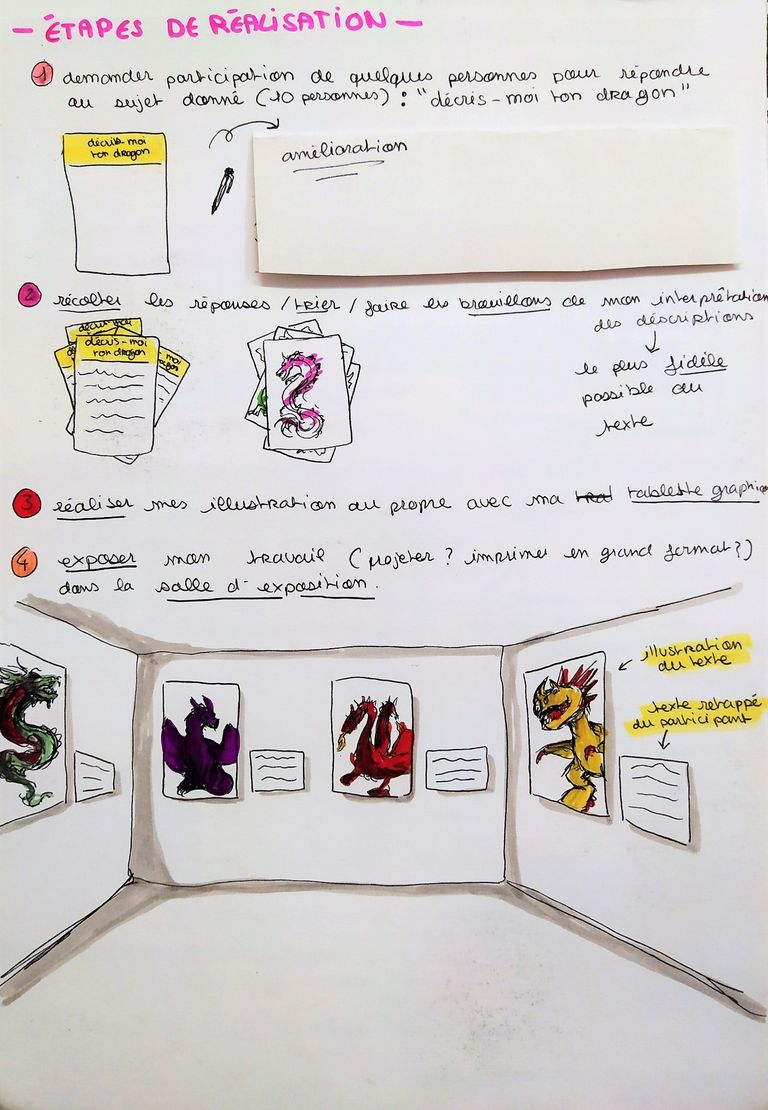 - ÉTAPES DE RÉALISATION -
1 demander participation de quelques personnes pour répondre
au sujet donné (10 personnes) : "décris-moi ton dragon"
décris-moi
ton dragon
amélioration
2 récolter les réponses / trier / faire les brouillons de mon interprétation
des déscriptions
le plus fidèle
possible au
texte
décris-moi
décris-moi
ton dragon
moi
3 réaliser mes illustration au propre avec ma tablette graphiq
4 exposer mon travail (projeter ? imprimer en grand format ?)
dans la salle d'exposition.
illustration
du texte
texte retappé
du participant